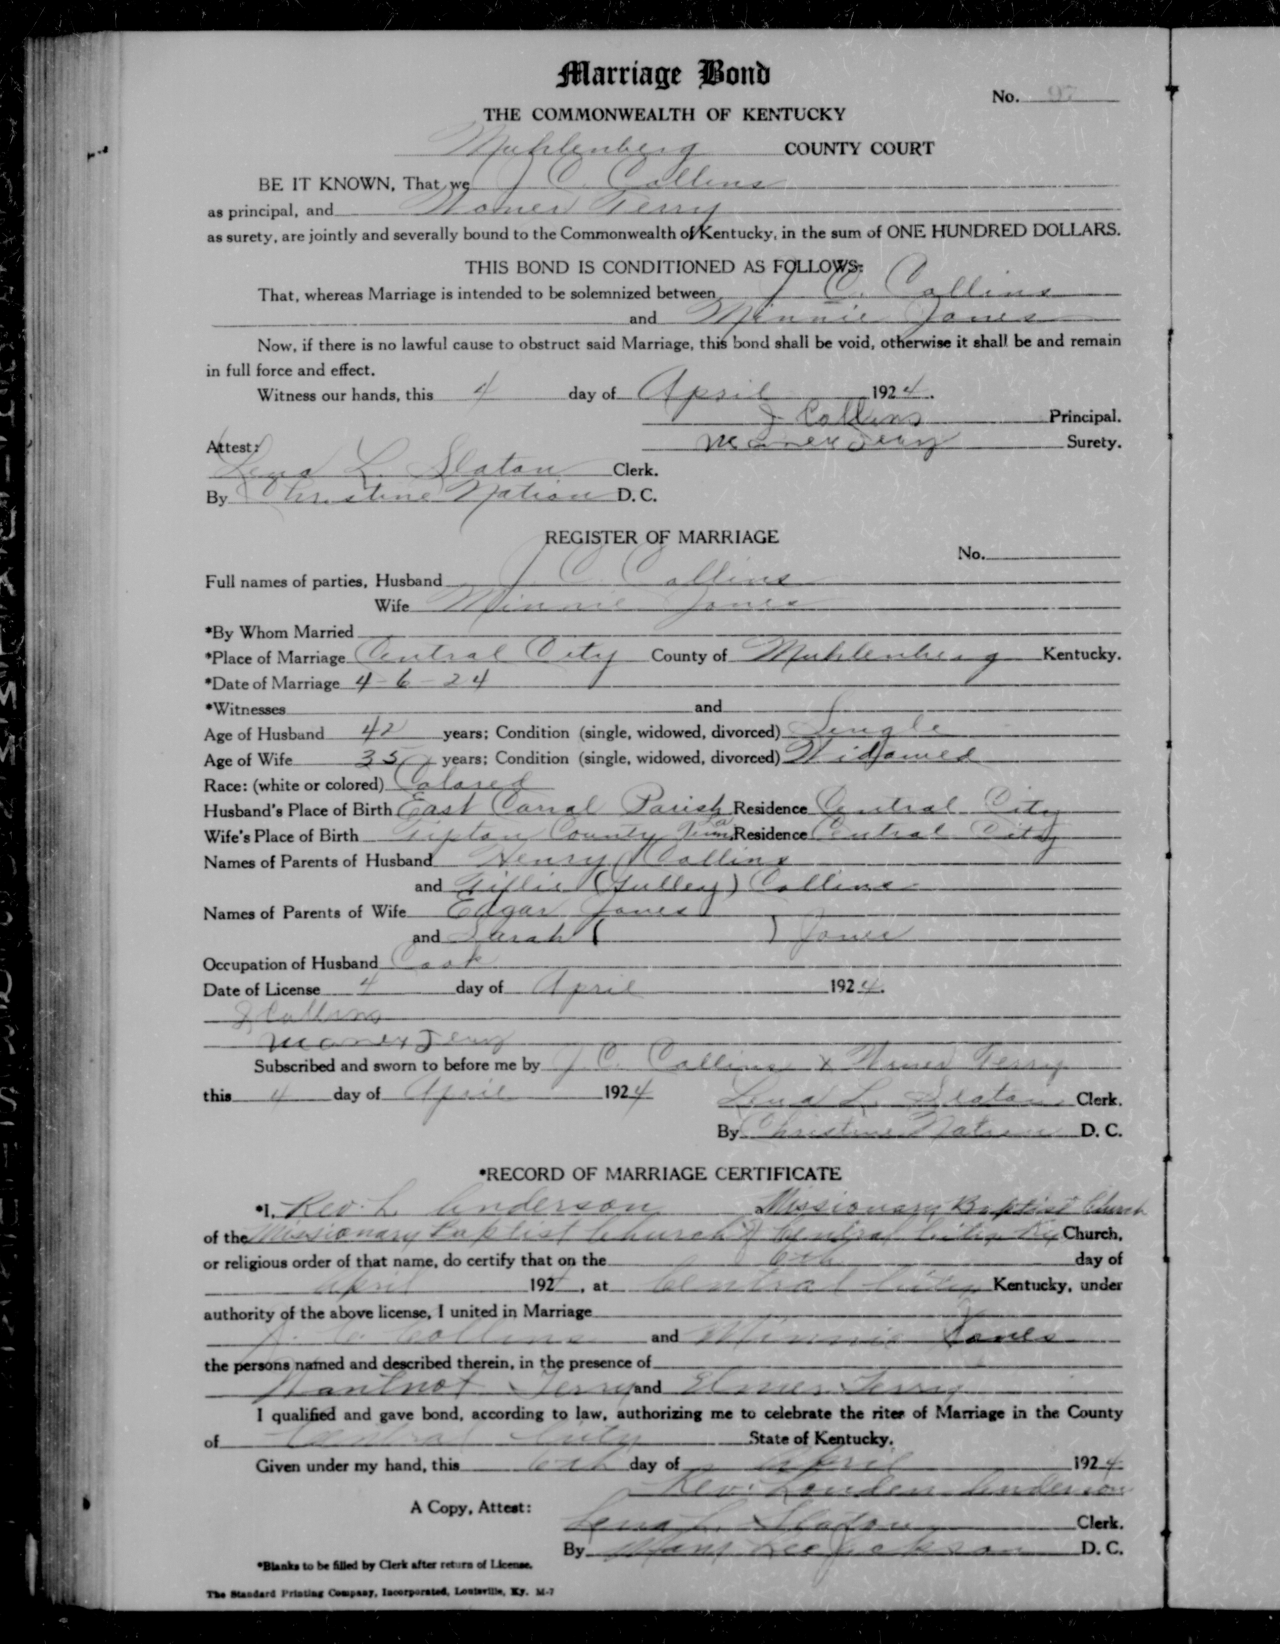 Marriage Bond
No. 97
THE COMMONWEALTH OF KENTUCKY
Muhlenberg COUNTY COURT
BE IT KNOWN, That we J C. Collins
as principal, and Terry
as surety, are jointly and severally bound to the Commonwealth of Kentucky, in the sum of ONE HUNDRED DOLLARS.
THIS BOND IS CONDITIONED AS FOLLOWS:
That, whereas Marriage is intended to be solemnized between J C. Collins
and Minnie Jones
Now, if there is no lawful cause to obstruct said Marriage, this bond shall be void, otherwise it shall be and remain
in full force and effect.
Witness our hands, this 4 day of April 1924.
J Collins Principal.
Terry Surety.
Attest:
Lena L. Slaton Clerk.
By Christine Nation D. C.
REGISTER OF MARRIAGE
No.
Full names of parties, Husband J. C. Collins
Wife Minnie Jones
*By Whom Married
*Place of Marriage Central City County of Muhlenberg Kentucky.
*Date of Marriage 4-6-24
*Witnesses and
Age of Husband 42 years; Condition (single, widowed, divorced) Single
Age of Wife 35 years; Condition (single, widowed, divorced) Widowed
Race: (white or colored) Colored
Husband's Place of Birth East Carral Parish La Residence Central City
Wife's Place of Birth Tipton County Tenn, Residence Central City
Names of Parents of Husband Henry Collins
and (Gulley) Collins
Names of Parents of Wife Edgar Jones
and Sarah ( ) Jones
Occupation of Husband Cook
Date of License 4 day of April 1924.
J Collins
Terry
Subscribed and sworn to before me by J. C. Collins & Terry
this 4 day of April 1924
Lena L. Slaton Clerk.
By Christine Nation D. C.
*RECORD OF MARRIAGE CERTIFICATE
*I, Rev. L. Anderson a Missionary Baptist Church
of the Missionary Baptist Church of Central City Ky Church,
or religious order of that name, do certify that on the 6th day of
April 1924, at Central City Kentucky, under
authority of the above license, I united in Marriage
J. C. Collins and Minnie Jones
the persons named and described therein, in the presence of
Terry and Elmer Terry
I qualified and gave bond, according to law, authorizing me to celebrate the rites of Marriage in the County
of Central City State of Kentucky.
Given under my hand, this 6th day of April 1924
Rev. Louden Anderson
A Copy, Attest:
Lena L. Slaton Clerk.
By Mary Lee Jackson D. C.
*Blanks to be filled by Clerk after return of License.
The Standard Printing Company, Incorporated, Louisville, Ky. M-7